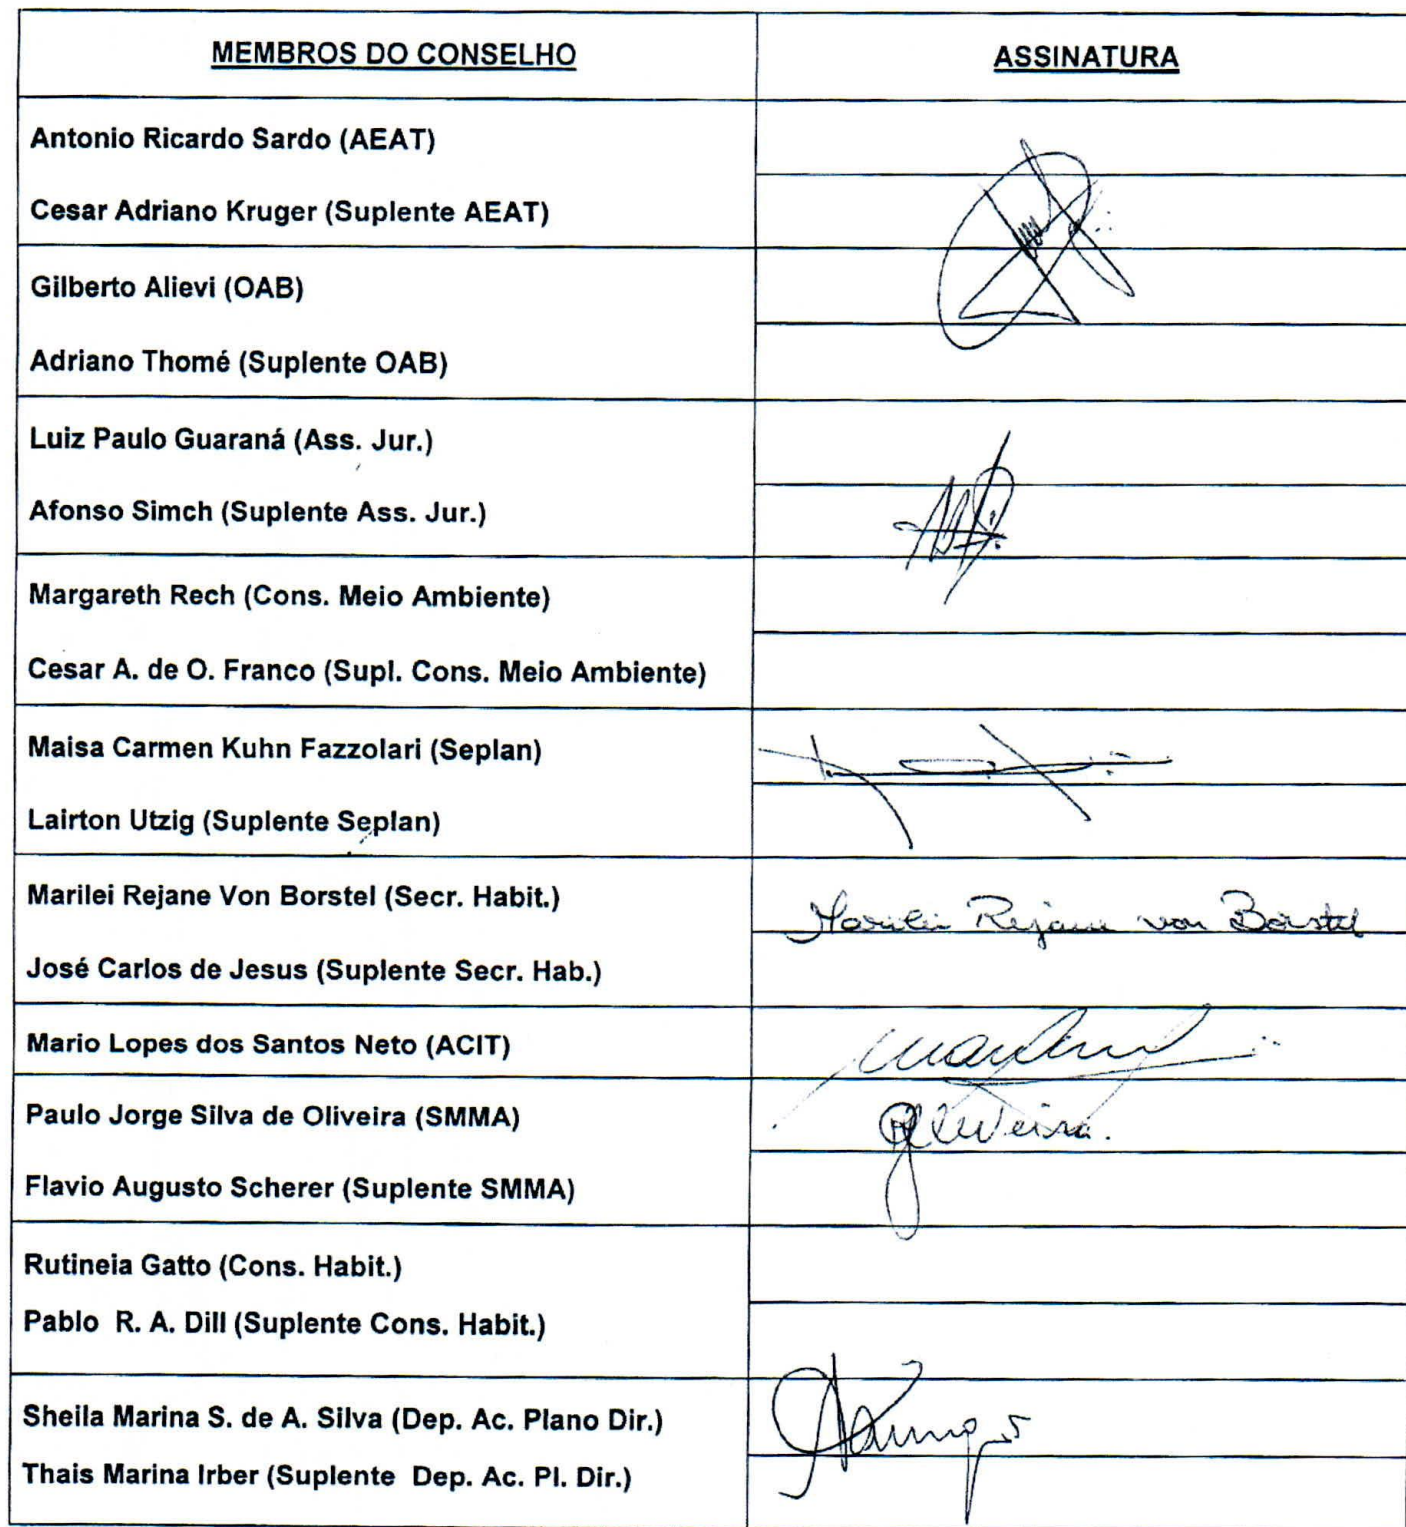 MEMBROS DO CONSELHO
ASSINATURA
Antonio Ricardo Sardo (AEAT)
Cesar Adriano Kruger (Suplente AEAT)
Gilberto Alievi (OAB)
Adriano Thomé (Suplente OAB)
Luiz Paulo Guaraná (Ass. Jur.)
Afonso Simch (Suplente Ass. Jur.)
Margareth Rech (Cons. Meio Ambiente)
Cesar A. de O. Franco (Supl. Cons. Meio Ambiente)
Maisa Carmen Kuhn Fazzolari (Seplan)
Lairton Utzig (Suplente Seplan)
Marilei Rejane Von Borstel (Secr. Habit.)
Marilei Rejane von Borstel
José Carlos de Jesus (Suplente Secr. Hab.)
Mario Lopes dos Santos Neto (ACIT)
Paulo Jorge Silva de Oliveira (SMMA)
Oliveira.
Flavio Augusto Scherer (Suplente SMMA)
Rutineia Gatto (Cons. Habit.)
Pablo R. A. Dill (Suplente Cons. Habit.)
Sheila Marina S. de A. Silva (Dep. Ac. Plano Dir.)
Thais Marina Irber (Suplente Dep. Ac. Pl. Dir.)